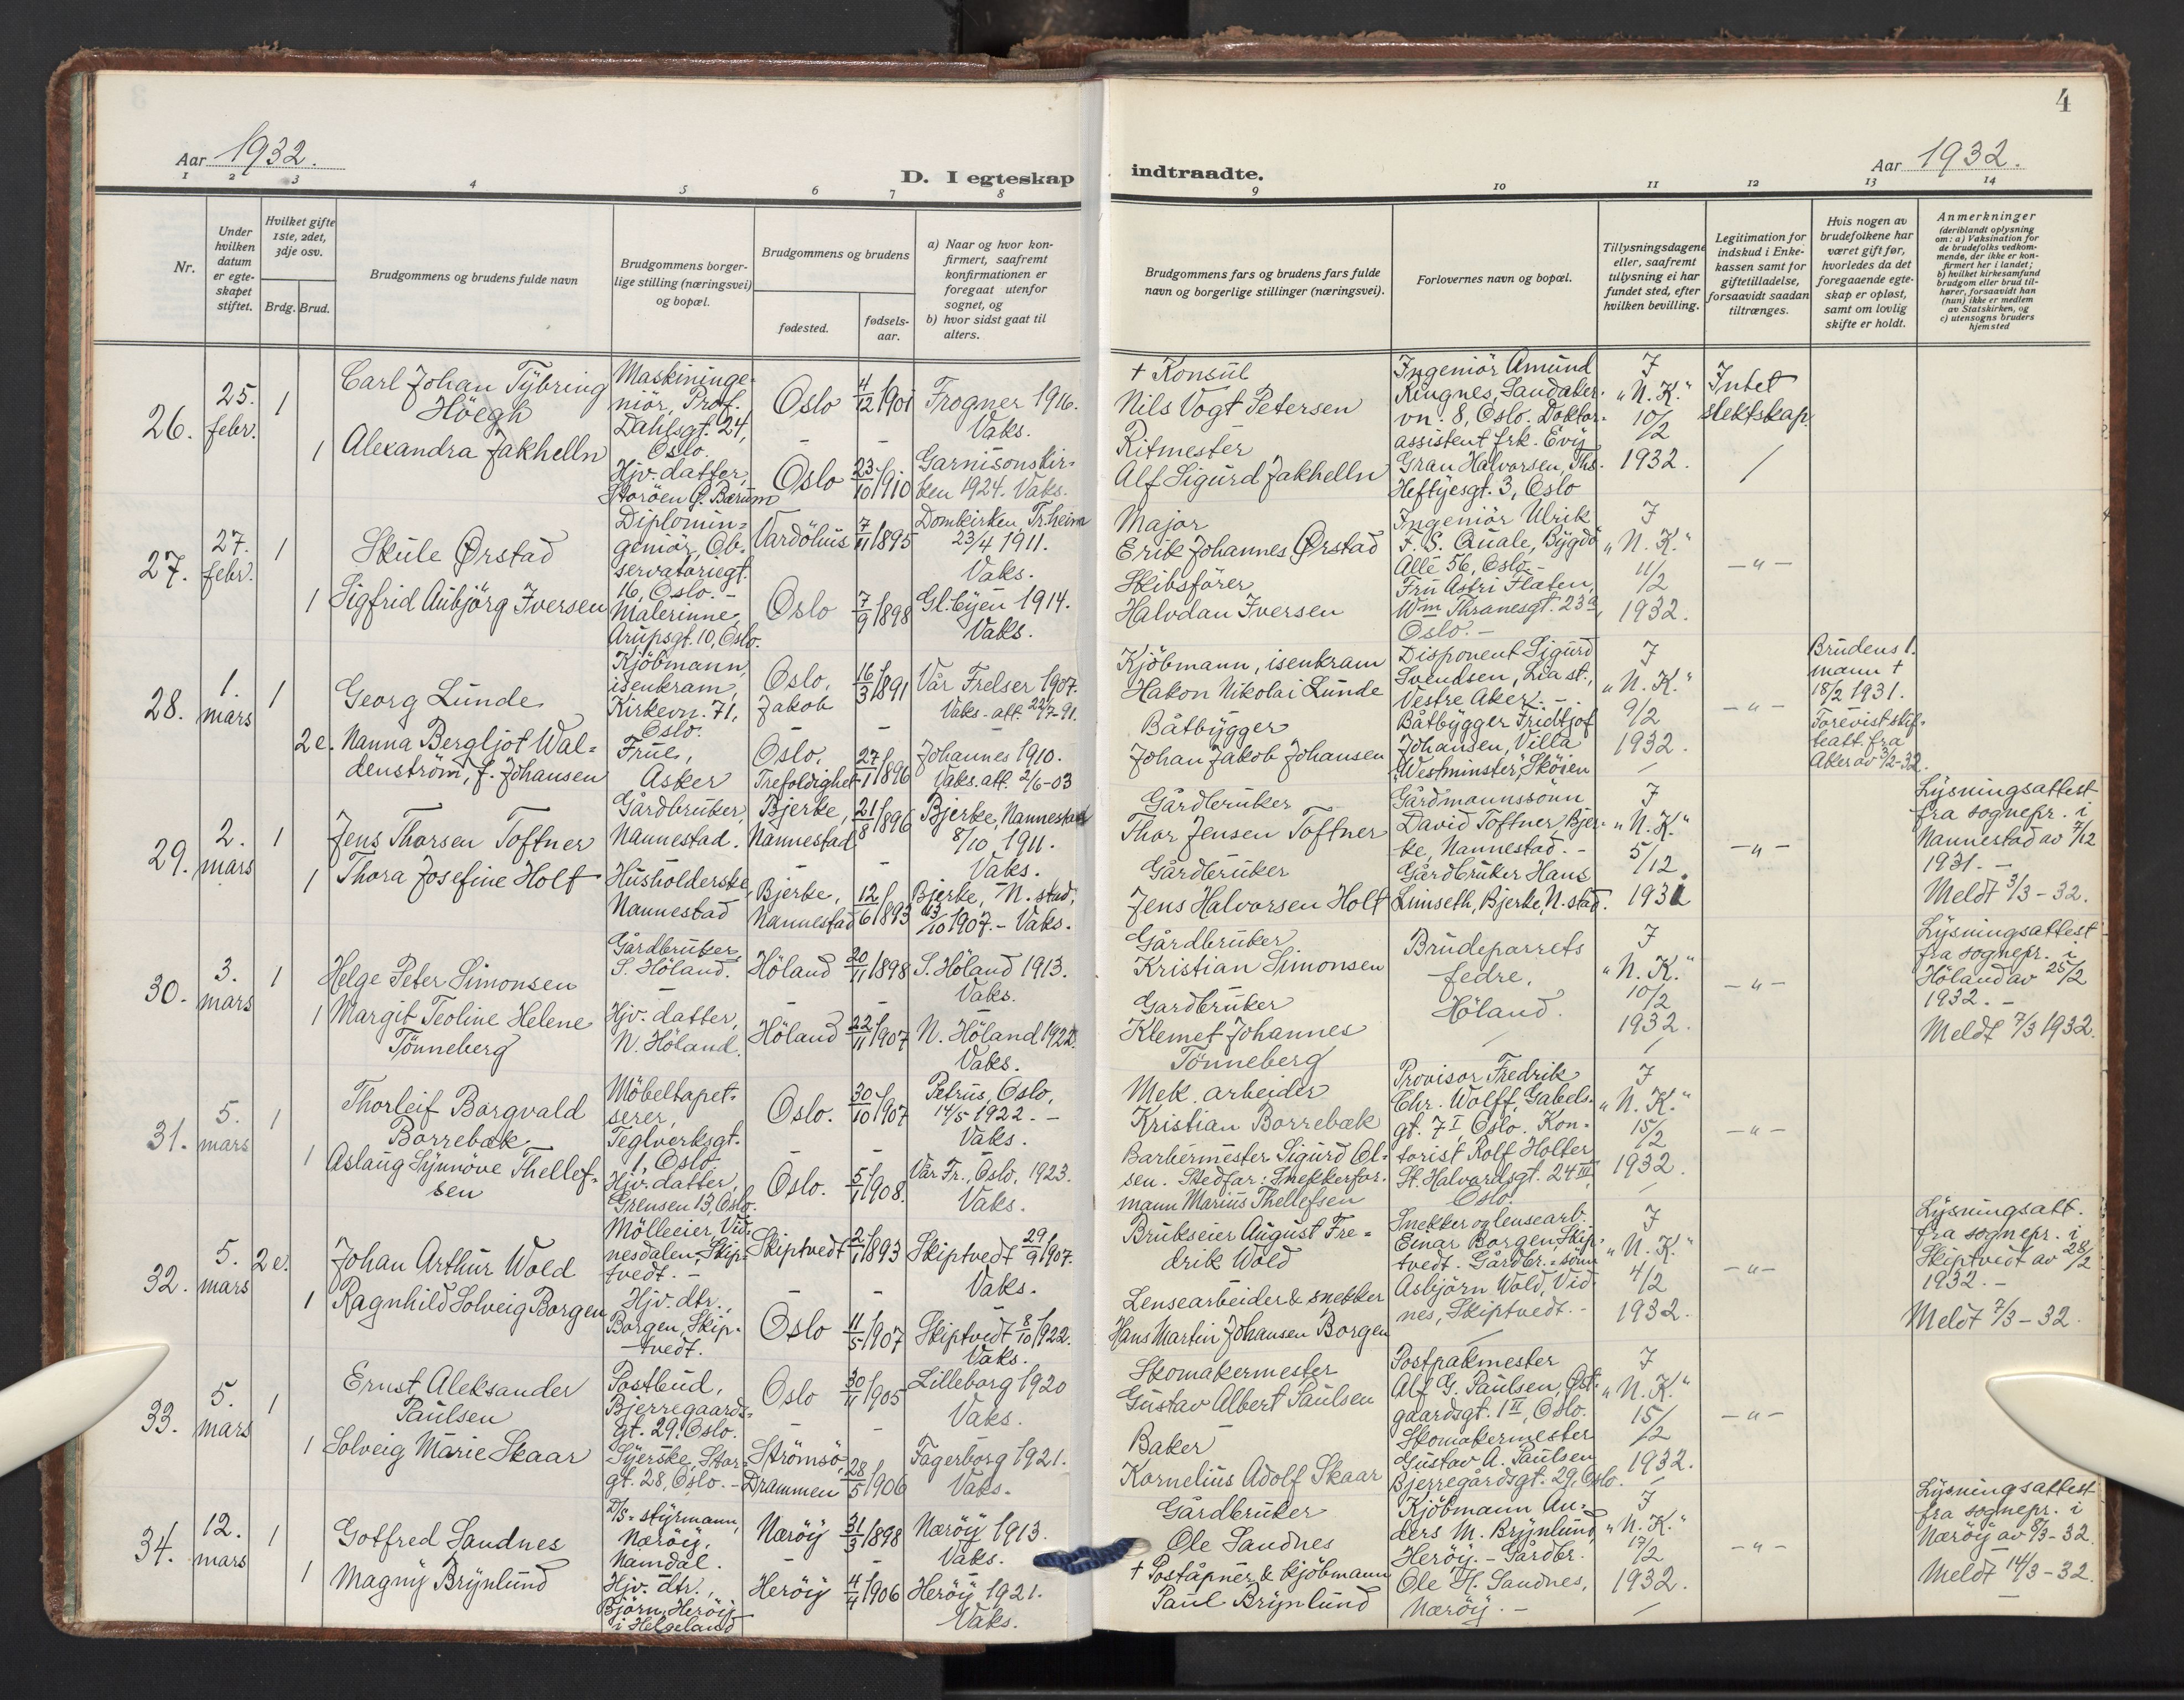 4
Aar 1932.
D. I egteskap indtraadte.
Aar 1932.
1 2 3 4 5 6 7 8 9 10 11 12 13 14
Nr.
Under hvilken datum er egteskapet stiftet.
Hvilket gifte 1ste, 2det, 3dje osv.
Brdg. Brud.
Brudgommens og brudens fulde navn
Brudgommens borgerlige stilling (næringsvei) og bopæl.
Brudgommens og brudens
fødested.
fødselsaar.
a) Naar og hvor konfirmert, saafremt konfirmationen er foregaat utenfor sognet, og
b) hvor sidst gaat til alters.
Brudgommens fars og brudens fars fulde navn og borgerlige stillinger (næringsvei).
Forlovernes navn og bopæl.
Tillysningsdagene eller, saafremt tillysning ei har fundet sted, efter hvilken bevilling.
Legitimation for indskud i Enkekassen samt for giftetilladelse, forsaavidt saadan tiltrænges.
Hvis nogen av brudefolkene har været gift før, hvorledes da det foregaaende egteskap er opløst, samt om lovlig skifte er holdt.
Anmerkninger (deriblandt oplysning om: a) Vaksination for de brudefolks vedkommende, der ikke er konfirmert her i landet; b) hvilket kirkesamfund brudgom eller brud tilhører, forsaavidt han (hun) ikke er medlem av Statskirken, og c) utensogns bruders hjemsted
26. 25. febr. 1
Carl Johan Tybring Höegh
Maskiningeniör, Prof. Dahlsgt. 24, Oslo.
Oslo 4/12 1901
Frogner 1916. Vaks.
+ Konsul Nils Vogt Petersen
Ingeniör Amund Ringnes, Sandakervn. 8, Oslo. Doktorassistent frk. Evy Gran Halvorsen, Ths. Heftyesgt. 3, Oslo
I "N. K." 10/2 1932.
Intet slektskap.
1 Alexandra Jakhelln
Hjv. datter, Storöen p. Bærum
Oslo 23/10 1910
Garnisonskirken 1924. Vaks.
Ritmester Alf Sigurd Jakhelln
27. 27. febr. 1
Skule Ørstad
Diplomingeniör, Observatoriegt. 16, Oslo. -
Vardöhus 7/11 1895
Domkirken, Tr.heim 23/4 1911. Vaks.
Major Erik Johannes Ørstad
Ingeniör Ulrik F. S. Quale, Bygdö Allé 56, Oslo. - Fru Astri Flaten, Wm Thranesgt. 23a, Oslo. -
I "N. K." 11/2 1932.
- " -
1 Sigfrid Aubjörg Iversen
Malerinne, Arupsgt. 10, Oslo.
Oslo 7/9 1898
Gl. Cyen 1914. Vaks.
Skibsförer Halvdan Iversen
28. 1. mars 1
Georg Lunde
Kjöbmann, isenkram, Kirkevn. 71, Oslo.
Oslo, Jakob 16/3 1891
Vår Frelser 1907. Vaks. att. 22/7-91.
Kjöbmann, isenkram Hakon Nikolai Lunde
Disponent Sigurd Svendsen, Lia st., Vestre Aker. - Båtbygger Fridtjof Johansen, Villa "Westminster", Sköien
I "N. K." 9/2 1932.
- " -
Brudens 1. mann + 18/2 1931. Forevist skifteatt. fra Aker av 3/2-32.
2 e. Nanna Bergljot Waldenström, f. Johansen
Frue, Asker
Oslo, Trefoldighet 27/1 1896
Johannes 1910. Vaks. att. 2/6-03
Båtbygger Johan Jakob Johansen
29. 2. mars 1
Jens Thorsen Toftner
Gårdbruker, Nannestad.
Bjerke, Nannestad 21/8 1896
Bjerke, Nannestad 8/10 1911. Vaks.
Gårdbruker Thor Jensen Toftner
Gårdmannssönn David Toftner, Bjerke, Nannestad. - Gårdbruker Hans Limseth, Bjerke, N. stad.
I "N. K." 5/12 1931
- " -
Lysningsattest fra sognepr. i Nannestad av 7/12 1931. - Meldt 3/3-32.
1 Thora Josefine Holt
Husholderske, Nannestad
Bjerke, Nannestad 12/6 1893
Bjerke, N. stad, 13/10 1907. - Vaks.
Gårdbruker Jens Halvorsen Holt
30. 3. mars 1
Helge Peter Simonsen
Gårdbruker, S. Höland.
Höland 20/11 1898
S. Höland 1913. Vaks.
Gårdbruker Kristian Simonsen
Brudeparrets fedre, Höland.
I "N. K." 10/2 1932.
- " -
Lysningsattest fra sognepr. i Höland av 25/2 1932. - Meldt 7/3 1932.
1 Margit Teoline Helene Tönneberg
Hjv. datter, N. Höland.
Höland 22/11 1907
N. Höland 1922. Vaks.
Gardbruker Klemet Johannes Tönneberg
31. 5. mars 1
Thorleif Borgvald Borrebæk
Möbeltapetserer, Teglverksgt. 1, Oslo.
Oslo. 30/10 1907
Petrus, Oslo, 14/5 1922. - Vaks.
Mek. arbeider Kristian Borrebæk
Provisor Fredrik Chr. Wolff, Gabelsgt. 7 I, Oslo. Kontorist Rolf Holter St. Halvardsgt. 24 III, Oslo.
I "N. K." 15/2 1932.
- " -
1 Aslaug Synnöve Thellefsen
Hjv. datter, Grensen 13, Oslo.
Oslo. 5/1 1908.
Vår Fr., Oslo, 1923. Vaks.
Barbermester Sigurd Olsen. Stedfar: Snekkerformann Marius Thellefsen
32. 5. mars 2 e.
Johan Arthur Wold
Mölleeier, Vidnesdalen, Skiptvedt. -
Skiptvedt 2/1 1893
Skiptvedt 29/9 1907. Vaks.
Brukseier August Fredrik Wold
Snekker og lensearb. Einar Borgen, Skiptvedt. Gårdbr.=sönn Asbjörn Wold, Vidnes, Skiptvedt. -
I "N. K." 4/2 1932.
- " -
Lysningsatt. fra sognepr. i Skiptvedt av 28/2 1932. - Meldt 7/3-32.
1 Ragnhild Solveig Borgen
Hjv. dtr., Borgen, Skiptvedt.
Oslo 11/5 1907
Skiptvedt 8/10 1922. Vaks.
Lensearbeider & snekker Hans Martin Johansen Borgen
33. 5. mars 1
Ernst Aleksander Paulsen
Postbud, Bjerregaardsgt. 29, Oslo.
Oslo 30/11 1905
Lilleborg 1920 Vaks.
Skomakermester Gustav Albert Paulsen
Postpakmester Alf G. Paulsen, Østgaardsgt. 1 II, Oslo. Skomakermester Gustav A. Paulsen Bjerregårdsgt. 29, Oslo.
I "N. K." 15/2 1932.
- " -
1 Solveig Marie Skaar
Syerske, Storgt. 28, Oslo. -
Strömsö, Drammen 28/5 1906
Fagerborg 1921. Vaks.
Baker Kornelius Adolf Skaar
34. 12. mars 1
Gotfred Sandnes
D/S=styrmann, Næröy, Namdal.
Næröy 31/3 1898
Næröy 1913. Vaks.
Gårdbruker Ole Sandnes
Kjöbmann Anders M. Brynlund, Heröy. - Gårdbr. Ole H. Sandnes, Næröy. -
I "N. K." 17/2 1932.
- " -
Lysningsattest fra sognepr. i Næröy av 8/3-32. Meldt 14/3-32.
1 Magny Brynlund
Hjv. dtr., Björn, Heröy i Helgeland
Heröy 4/4 1906
Heröy 1921. Vaks.
+ Poståpner & kjöbmann Paul Brynlund